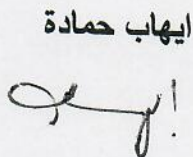 ايهاب حمادة